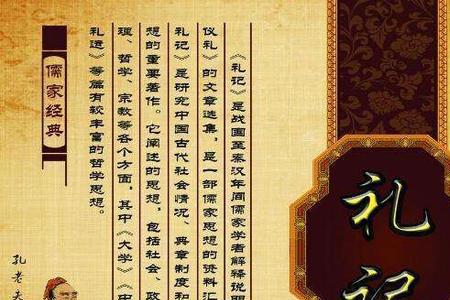 礼记
《礼记》是战国至秦汉年间儒家学者解释说明
仪礼》的文章选集，是一部儒家思想的资料汇
礼记》是研究中国古代社会情况、典章制度和
想的重要著作。它阐述的思想，包括社会、政
理、哲学、宗教等各个方面，其中《大学》《中
礼运》等篇有较丰富的哲学思想。
儒家经典
孔老夫